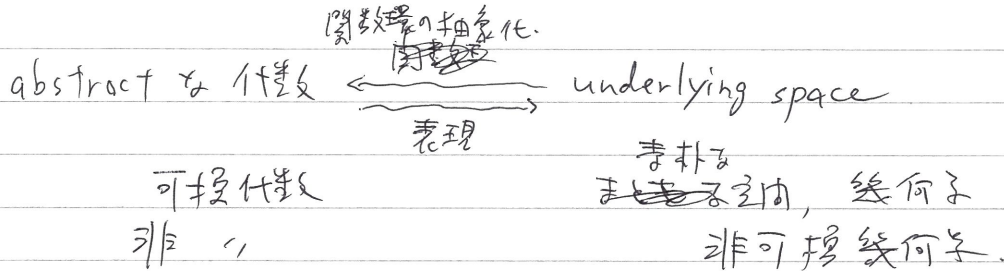 関数環の抽象化.
abstract な 代数 ← → underlying space
表現
素朴な
可換代数 空間, 幾何学
非 〃 非可換幾何学.